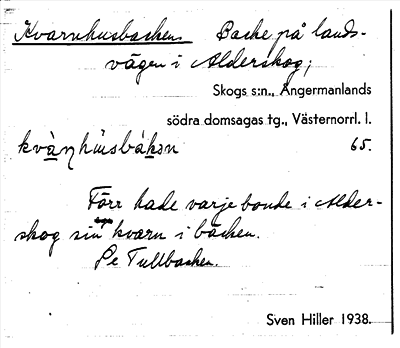 Kvarnhusbacken. Backe på lands-
vägen i Alderskog;
Skogs s:n., Ångermanlands
södra domsagas tg., Västernorrl. l.
kvàṇhùsbákən 65.
Förr hade varje bonde i Alder-
skog sin kvarn i bäcken.
Se Tullbacken.
Sven Hiller 1938.